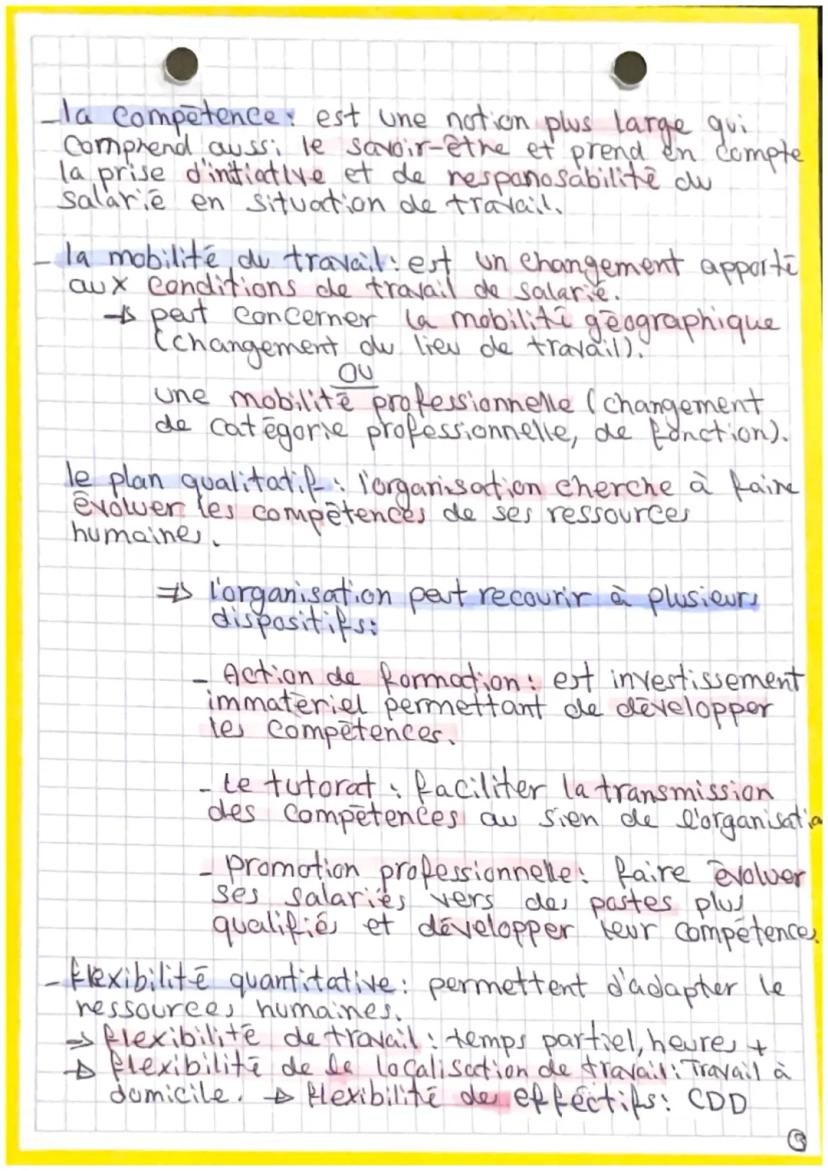 - la compétence : est une notion plus large qui
comprend aussi le savoir-être et prend en compte
la prise d'intiative et de respanosabilité du
salarié en situation de travail.
- la mobilité du travail : est un changement apporté
aux conditions de travail de salarié.
→ peut concerner la mobilité géographique
(changement du lieu de travail).
OU
une mobilité professionnelle (changement
de catégorie professionnelle, de fonction).
le plan qualitatif : l'organisation cherche à faire
évoluer les compétences de ses ressources
humaines.
⇒ l'organisation peut recourir à plusieurs
dispositifs :
- Action de formation : est investissement
immatériel permettant de développer
les compétences.
- Le tutorat : faciliter la transmission
des compétences au sien de l'organisatio
- promotion professionnelle : faire évoluer
ses salariés vers des postes plus
qualifiés et développer leur compétences.
- flexibilité quantitative : permettent d'adapter le
ressources humaines.
⇒ flexibilité de travail : temps partiel, heures +
→ flexibilité de le localisation de travail : Travail à
domicile. → flexibilité des effectifs : CDD
3